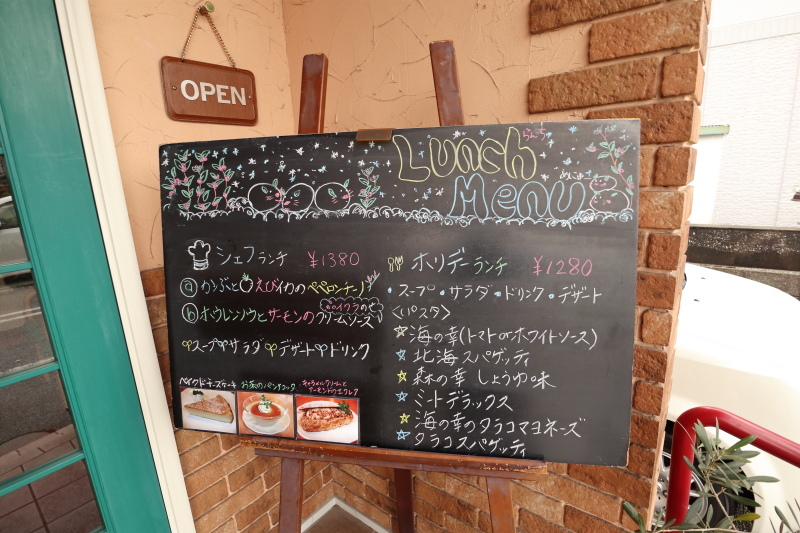 OPEN
Lunch
らんち
Menu
めにゅー
シェフランチ ¥1380
ⓐ かぶとえびイカのペペロンチーノ
ⓑ ホウレンソウとサーモンのクリームソース
スープ サラダ デザート ドリンク
ベイクドチーズケーキ
お茶のパンナコッタ
キャラメルクリームと
アーモンドのエクレア
ホリデーランチ ¥1280
・スープ ・サラダ ・ドリンク ・デザート
〈パスタ〉
☆海の幸(トマトorホワイトソース)
☆北海スパゲッティ
☆森の幸 しょうゆ味
☆ミートデラックス
☆海の幸のタラコマヨネーズ
☆タラコスパゲッティ